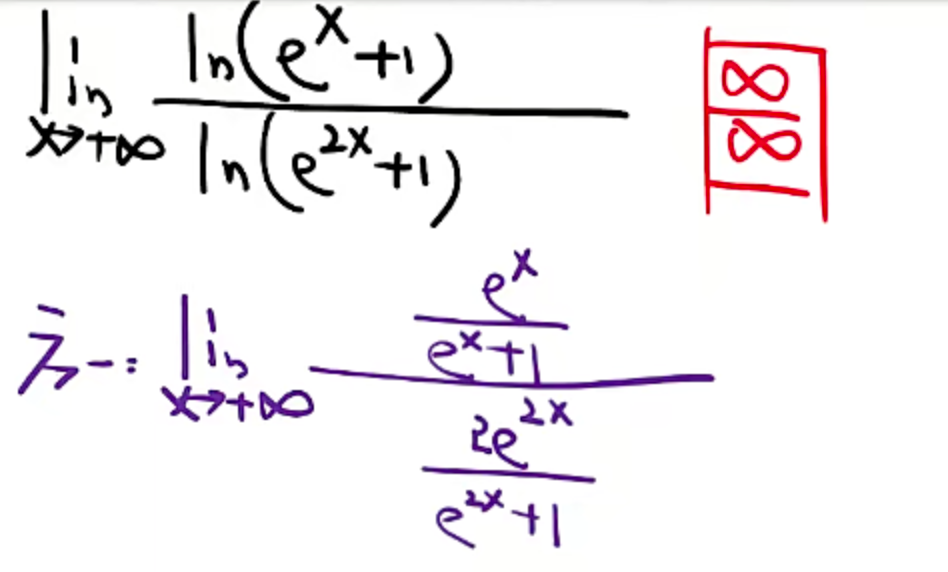 lim x→+∞ ln(e^x+1) / ln(e^{2x}+1)
∞/∞
方一: lim x→+∞ (e^x / (e^x+1)) / (2e^{2x} / (e^{2x}+1))